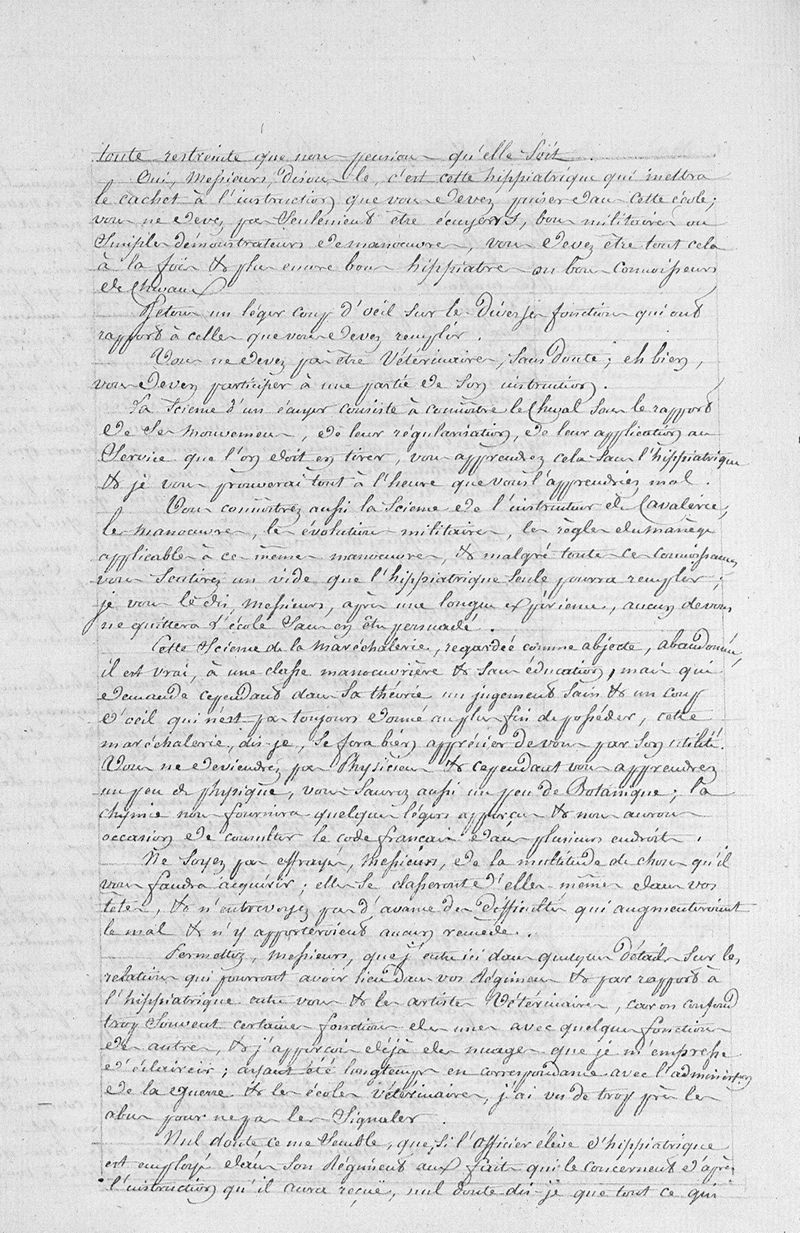 toute restreinte que nous pensions qu'elle soit.
Oui, Messieurs, disons le, c'est cette hippiatrique qui mettra
le cachet à l'instruction que vous devez puiser dans cette école;
vous ne devez pas seulement être écuyers, bons militaires ou
simples démonstrateurs de manœuvres, vous devez être tout cela
à la fois & plus encore bons hippiatres ou bons connoisseurs
de Chevaux
Jetons un léger coup d'œil sur les diverses fonctions qui ont
rapport à celles que vous devez remplir.
Vous ne devez pas être Vétérinaires, sans doute; eh bien,
vous devez participer à une partie de son instruction.
La science d'un écuyer consiste à connoître le Cheval sous le rapport
de ses mouvemens, de leur régularisation, de leur application au
service que l'on doit en tirer, vous apprendrez cela sans l'hippiatrique
& je vous prouverai tout à l'heure que vous l'apprendriez mal.
Vous connoîtrez aussi la science de l'instructeur de Cavalerie,
les manœuvres, les évolutions militaires, les règles du manège
applicables à ces mêmes manœuvres, & malgré toutes ces connoissances
vous sentirez un vide que l'hippiatrique seule pourra remplir;
je vous le dis, Messieurs, après une longue expérience, aucun de vous
ne quittera l'école sans en être persuadé.
Cette science de la maréchalerie, regardée comme abjecte, abandonnée,
il est vrai, à une classe manœuvrière & sans éducation, mais qui
demande cependant dans sa théorie un jugement sain & un coup
d'œil qui n'est pas toujours donné au plus fin de posséder, cette
maréchalerie, dis-je, se fera bien apprécier de vous par son utilité.
Vous ne deviendrez pas Physiciens & cependant vous apprendrez
un peu de physique, vous saurez aussi un peu de Botanique; la
chymie nous fournira quelques légers apperçus & nous aurons
occasion de consulter le code français dans plusieurs endroits.
Ne soyez pas effrayés, Messieurs, de la multitude de choses qu'il
vous faudra acquérir; elles se classeront d'elles-mêmes dans vos
têtes, & n'entrevoyez pas d'avance des difficultés qui augmenteroient
le mal & n'y apporteroient aucun remède.
Permettez, Messieurs, que j'entre ici dans quelques détails sur les
relations qui pourront avoir lieu dans vos Régimens & par rapport à
l'hippiatrique entre vous & les artistes Vétérinaires, car on confond
trop souvent certaines fonctions des unes avec quelques fonctions
des autres, & j'apperçois déjà des nuages que je m'empresse
d'éclaircir; ayant été longtemps en correspondance avec l'administration
de la guerre & les écoles vétérinaires, j'ai vu de trop près les
abus pour ne pas les signaler.
Nul doute ce me semble, que si l'officier élève d'hippiatrique
est employé dans son Régiment aux faits qui le concernent d'après
l'instruction qu'il aura reçue, nul doute dis-je que tout ce qui